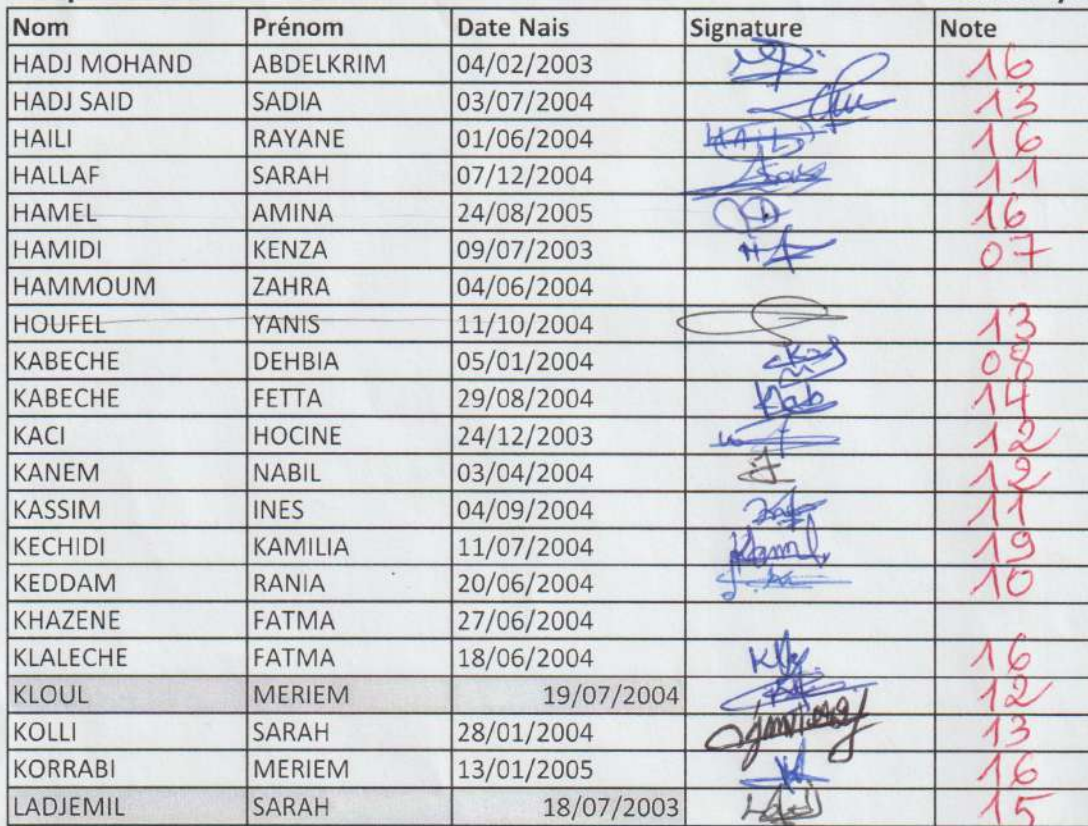 Nom Prénom Date Nais Signature Note
HADJ MOHAND ABDELKRIM 04/02/2003 16
HADJ SAID SADIA 03/07/2004 13
HAILI RAYANE 01/06/2004 16
HALLAF SARAH 07/12/2004 11
HAMEL AMINA 24/08/2005 16
HAMIDI KENZA 09/07/2003 07
HAMMOUM ZAHRA 04/06/2004
HOUFEL YANIS 11/10/2004 13
KABECHE DEHBIA 05/01/2004 08
KABECHE FETTA 29/08/2004 14
KACI HOCINE 24/12/2003 12
KANEM NABIL 03/04/2004 12
KASSIM INES 04/09/2004 11
KECHIDI KAMILIA 11/07/2004 19
KEDDAM RANIA 20/06/2004 10
KHAZENE FATMA 27/06/2004
KLALECHE FATMA 18/06/2004 16
KLOUL MERIEM 19/07/2004 12
KOLLI SARAH 28/01/2004 13
KORRABI MERIEM 13/01/2005 16
LADJEMIL SARAH 18/07/2003 15